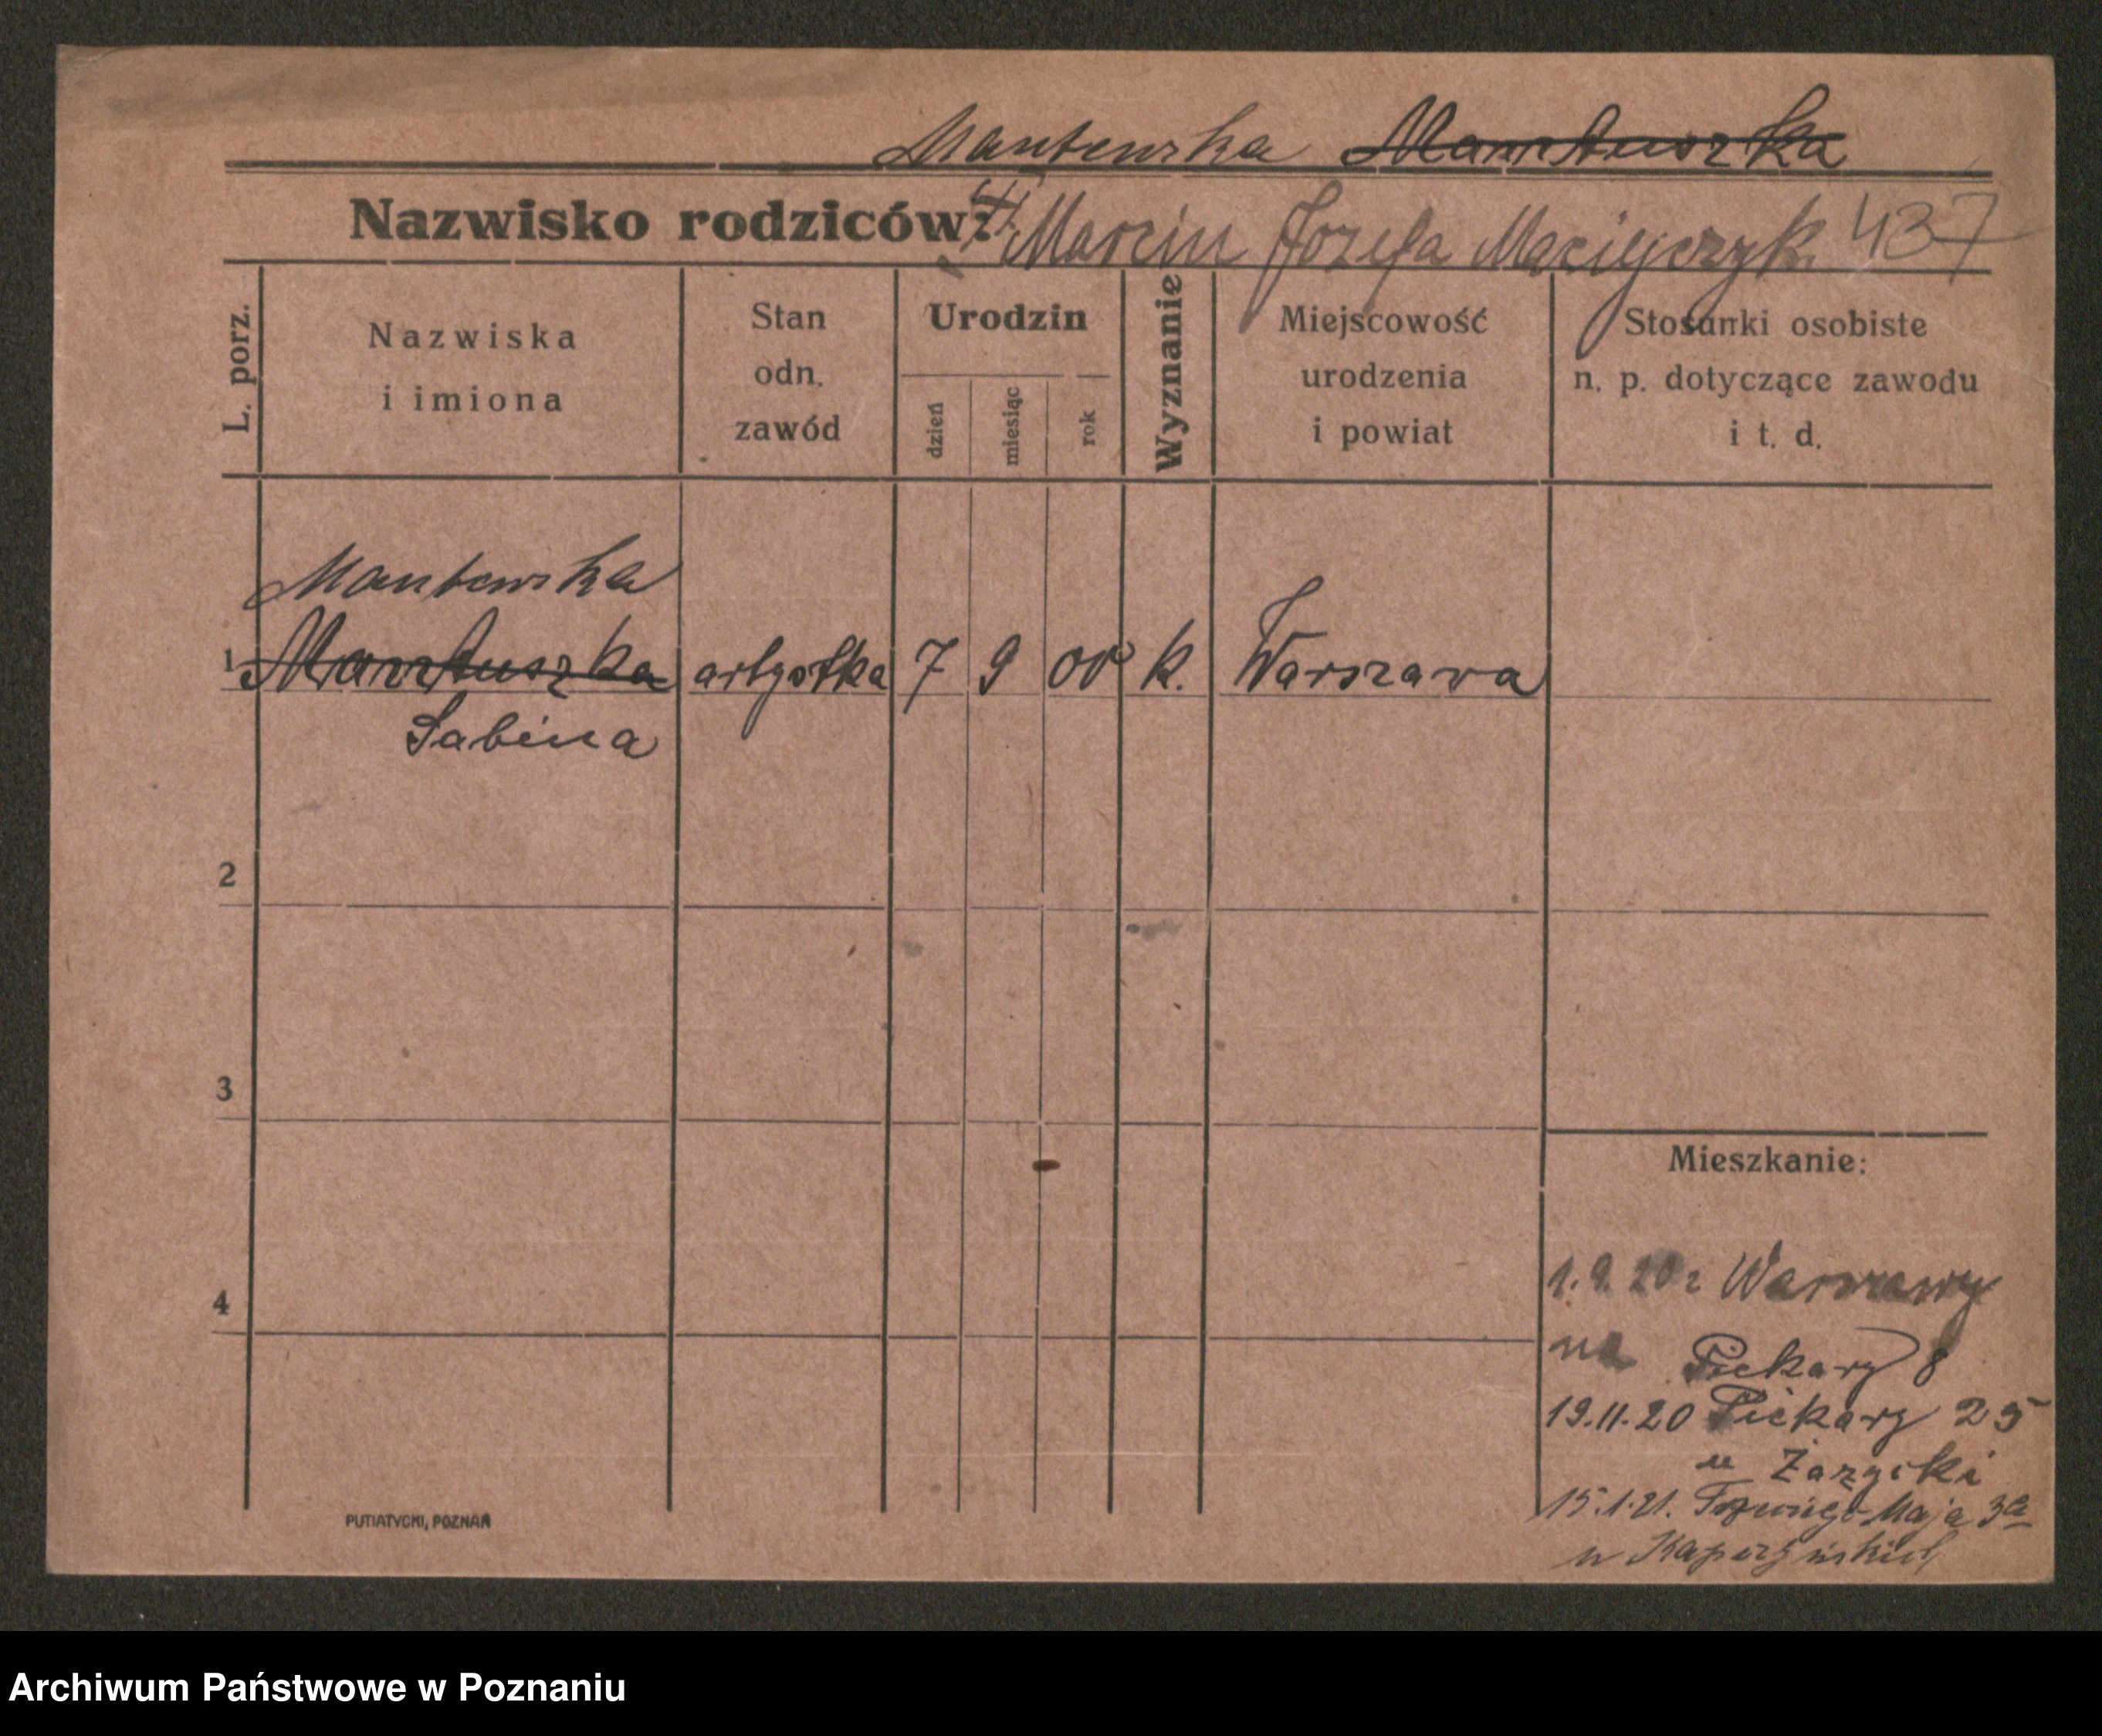 Mantewska Manntuszka
Nazwisko rodziców: Marcin Józefa Maciejczyk. 437
L. porz.
Nazwiska i imiona
Stan odn. zawód
Urodzin
dzień
miesiąc
rok
Wyznanie
Miejscowość urodzenia i powiat
Stosunki osobiste n. p. dotyczące zawodu i t. d.
Mantewska
1 Manntuszka artystka 7 9 00 k. Warszawa
Sabina
2
3
4
Mieszkanie:
1.9.20 z Warszawy
na Piekary 8
19.11.20 Piekary 25
u
15.1.21. Maja 3a
u
PUTIATYCKI, POZNAŃ
Archiwum Państwowe w Poznaniu